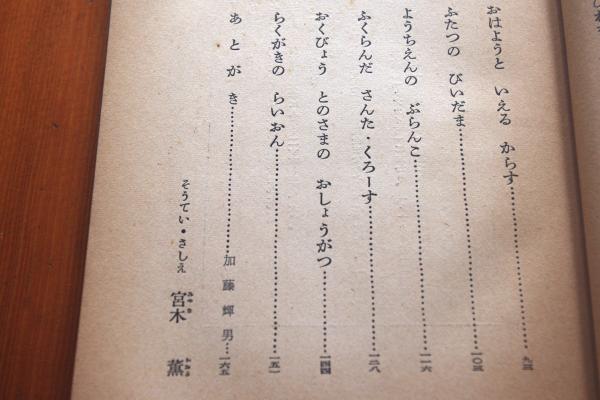 おはようと いえる からす………九三
ふたつの びいだま………一〇三
ようちえんの ぶらんこ………一一六
ふくらんだ さんた・くろーす………一二八
おくびょう とのさまの おしょうがつ………一四四
らくがきの らいおん………一五一
あとがき………加藤輝男…一六五
そうてい・さしえ 宮木 薫